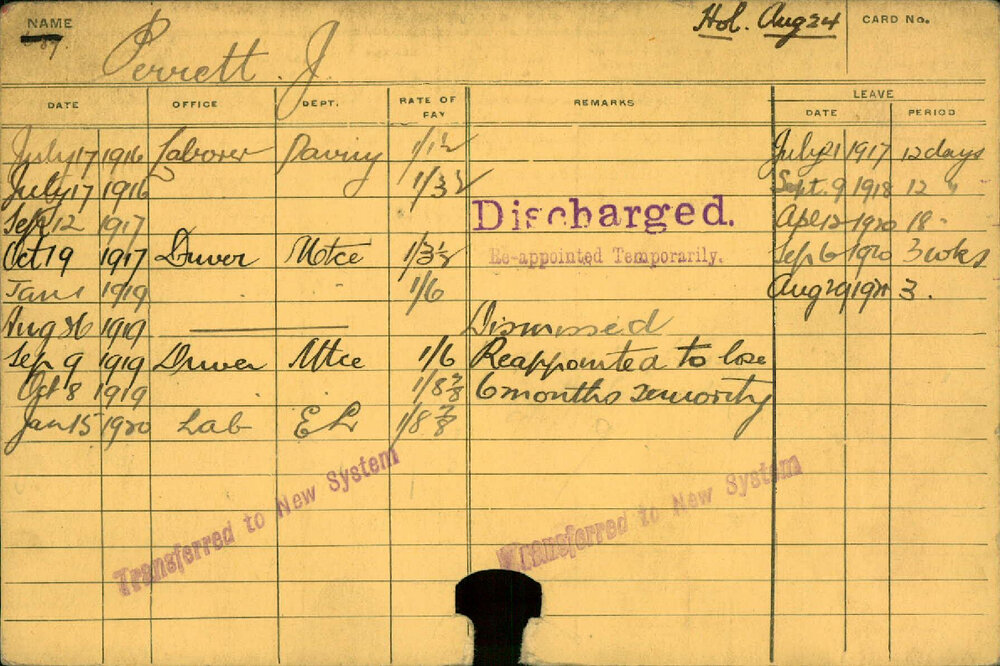 NAME Hol. Aug 24 CARD No.
Perrett. J.
DATE OFFICE DEPT. RATE OF PAY REMARKS LEAVE
DATE PERIOD
July 17 1916 Laborer Paving 1/1½ July 21 1917 12 days
July 17 1916 1/3½ Sept. 9 1918 12 "
Sep 12 1917 Discharged. Apl 12 1920 18 -
Oct 19 1917 Driver Mtce 1/3½ Re-appointed Temporarily. Sep 6 1920 3 wks
Jan 1 1919 . . 1/6 Aug 29 1921 3.
Aug 26 1919 Dismissed
Sep 9 1919 Driver Mtce 1/6 Reappointed to lose
Oct 8 1919 . . 1/8⅞ 6 months seniority
Jan 15 1920 Lab EL 1/8⅞
Transferred to New System
Transferred to New System